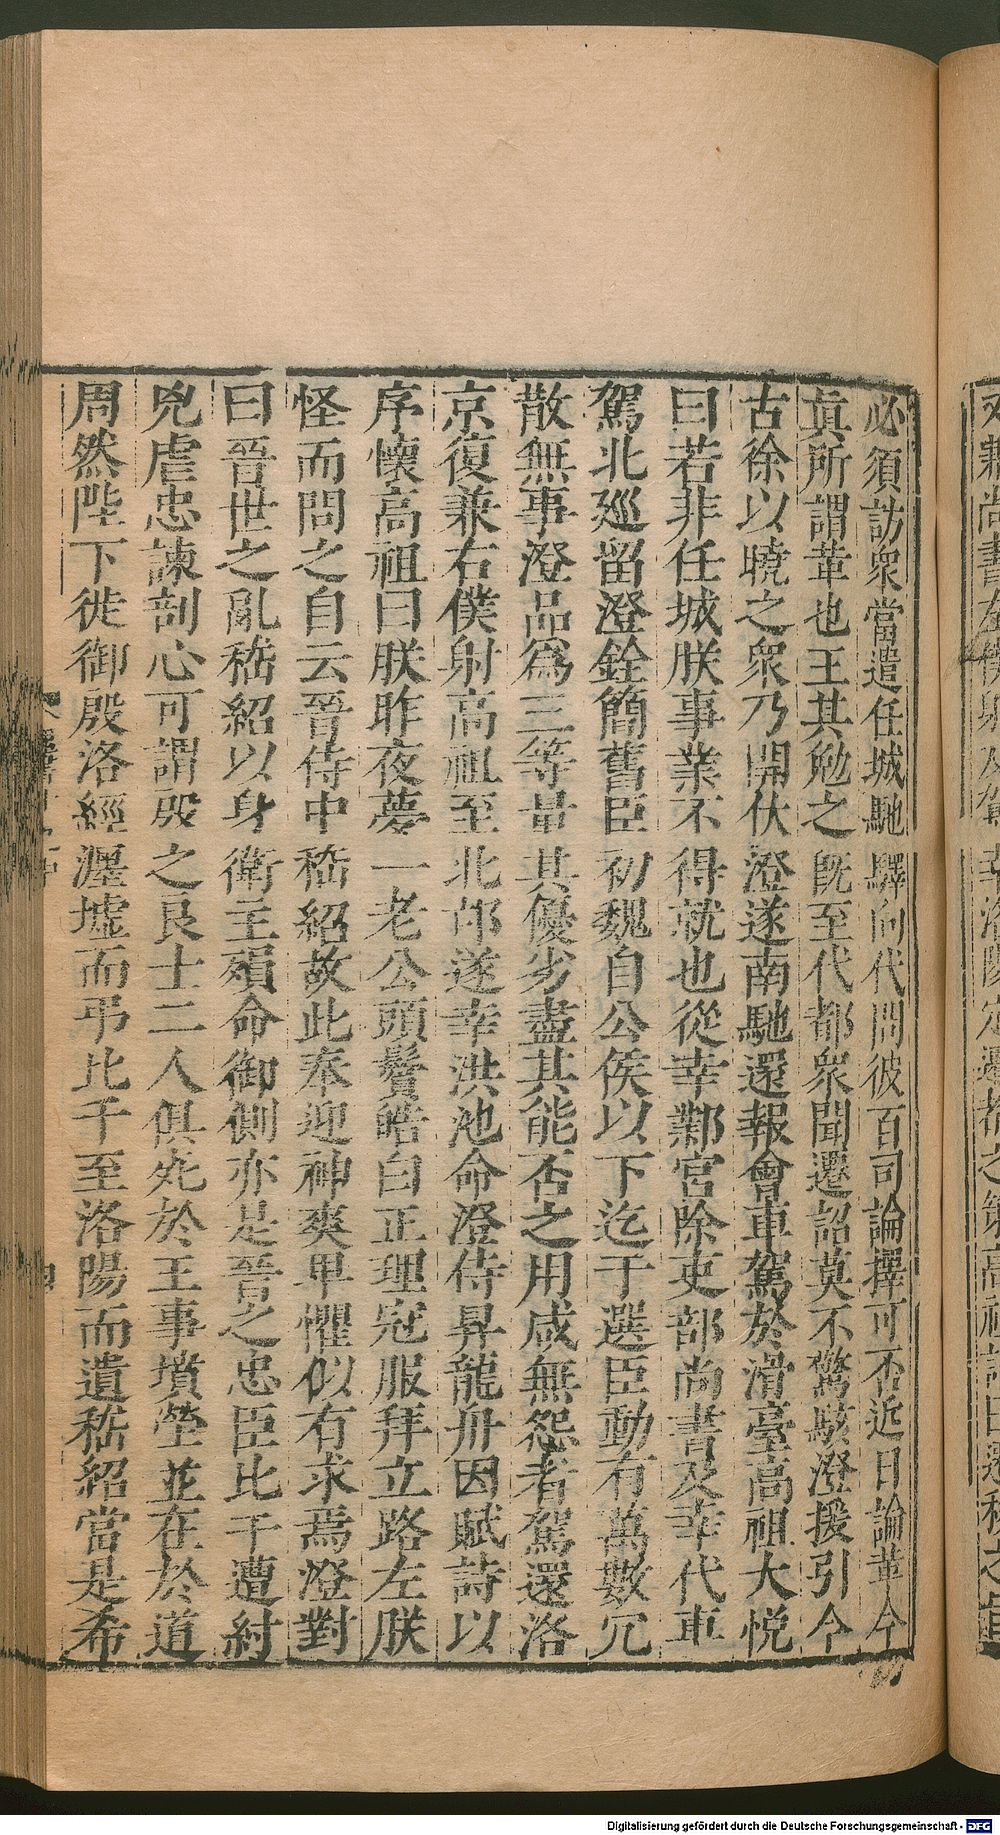 必須訪衆當遣任城馳驛向代問彼百司論擇可否近日論革今
眞所謂革也王其勉之旣至代都衆聞遷詔莫不驚駭澄援引今
古徐以曉之衆乃開伏澄遂南馳還報會車駕於滑臺高祖大悅
曰若非任城朕事業不得就也從幸鄴宮除吏部尚書及幸代車
駕北廵留澄銓簡舊臣初魏自公侯以下迄于選臣動有萬數冗
散無事澄品爲三等量其優劣盡其能否之用咸無怨者駕還洛
京復兼右僕射高祖至北邙遂幸洪池命澄侍昇龍舟因賦詩以
序懷高祖曰朕昨夜夢一老公頭鬢皓白正理冠服拜立路左朕
怪而問之自云晉侍中嵇紹故此奉迎神爽卑懼似有求焉澄對
曰晉世之亂嵇紹以身衛主殞命御側亦是晉之忠臣比干遭紂
兇虐忠諫剖心可謂殷之良士二人俱死於王事墳塋並在於道
周然陛下徙御殷洛經瀍墟而弔比干至洛陽而遺嵇紹當是希
Digitalisierung gefördert durch die Deutsche Forschungsgemeinschaft - DFG